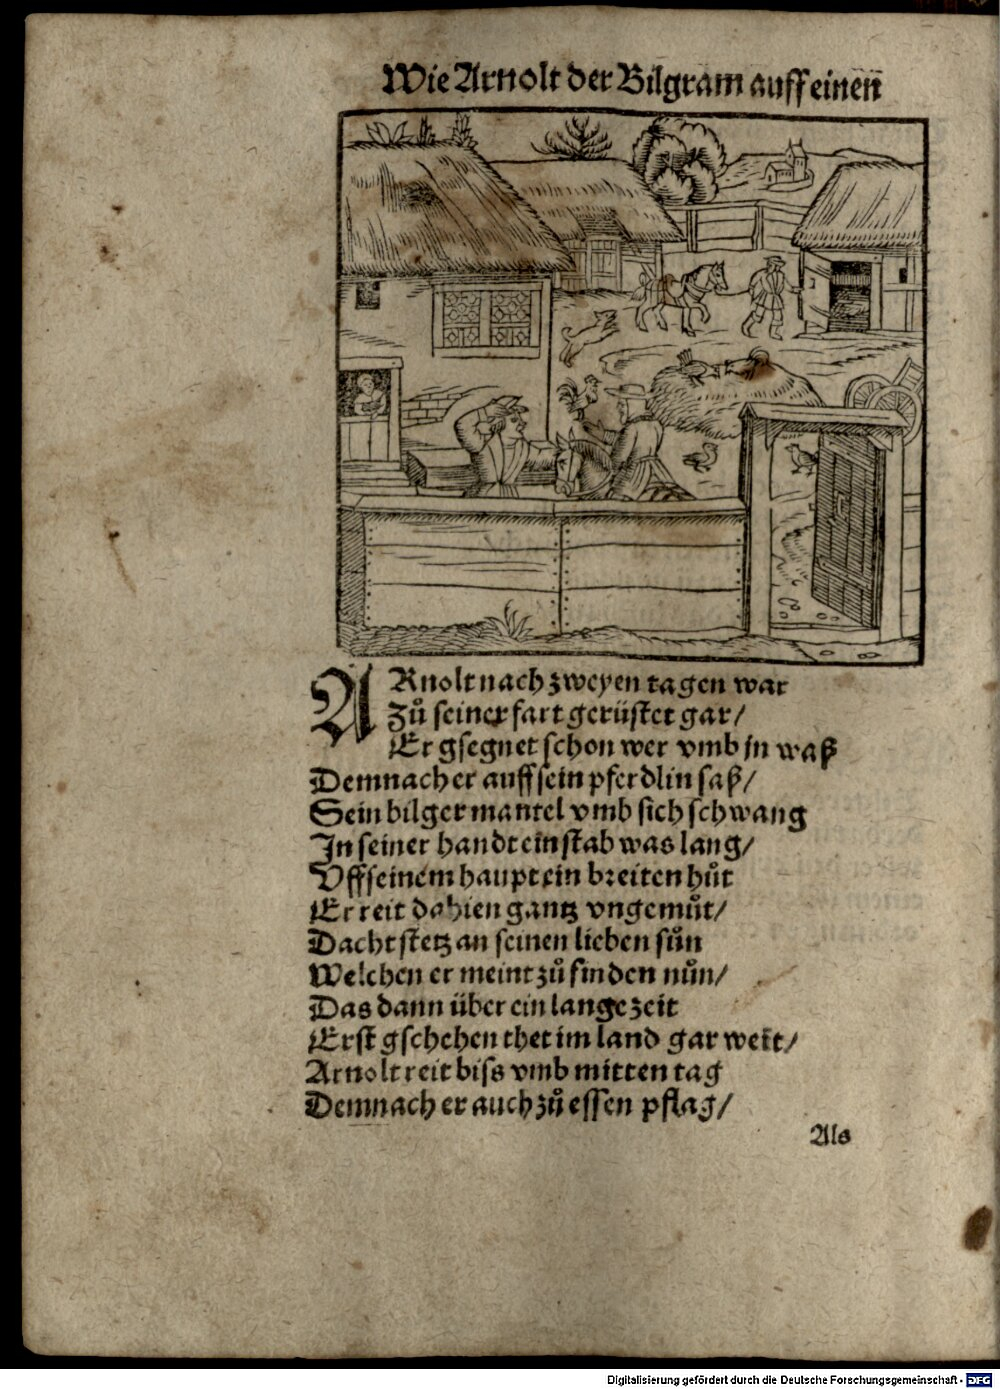 Wie Arnolt der Bilgram auff einen
ARnolt nach zweyen tagen war
Zů seiner fart gerüstet gar/
Er gsegnet schon wer vmb in waß
Demnach er auff sein pferdlin saß/
Sein bilger mantel vmb sich schwang
In seiner handt ein stab was lang/
Vff seinem haupt ein breiten hůt
Er reit dahien gantz vngemůt/
Dacht stetz an seinen lieben sůn
Welchen er meint zů finden nůn/
Das dann über ein lange zeit
Erst gschehen thet im land gar weit/
Arnolt reit biss vmb mitten tag
Demnach er auch zů essen pflag/
Als
Digitalisierung gefördert durch die Deutsche Forschungsgemeinschaft - DFG